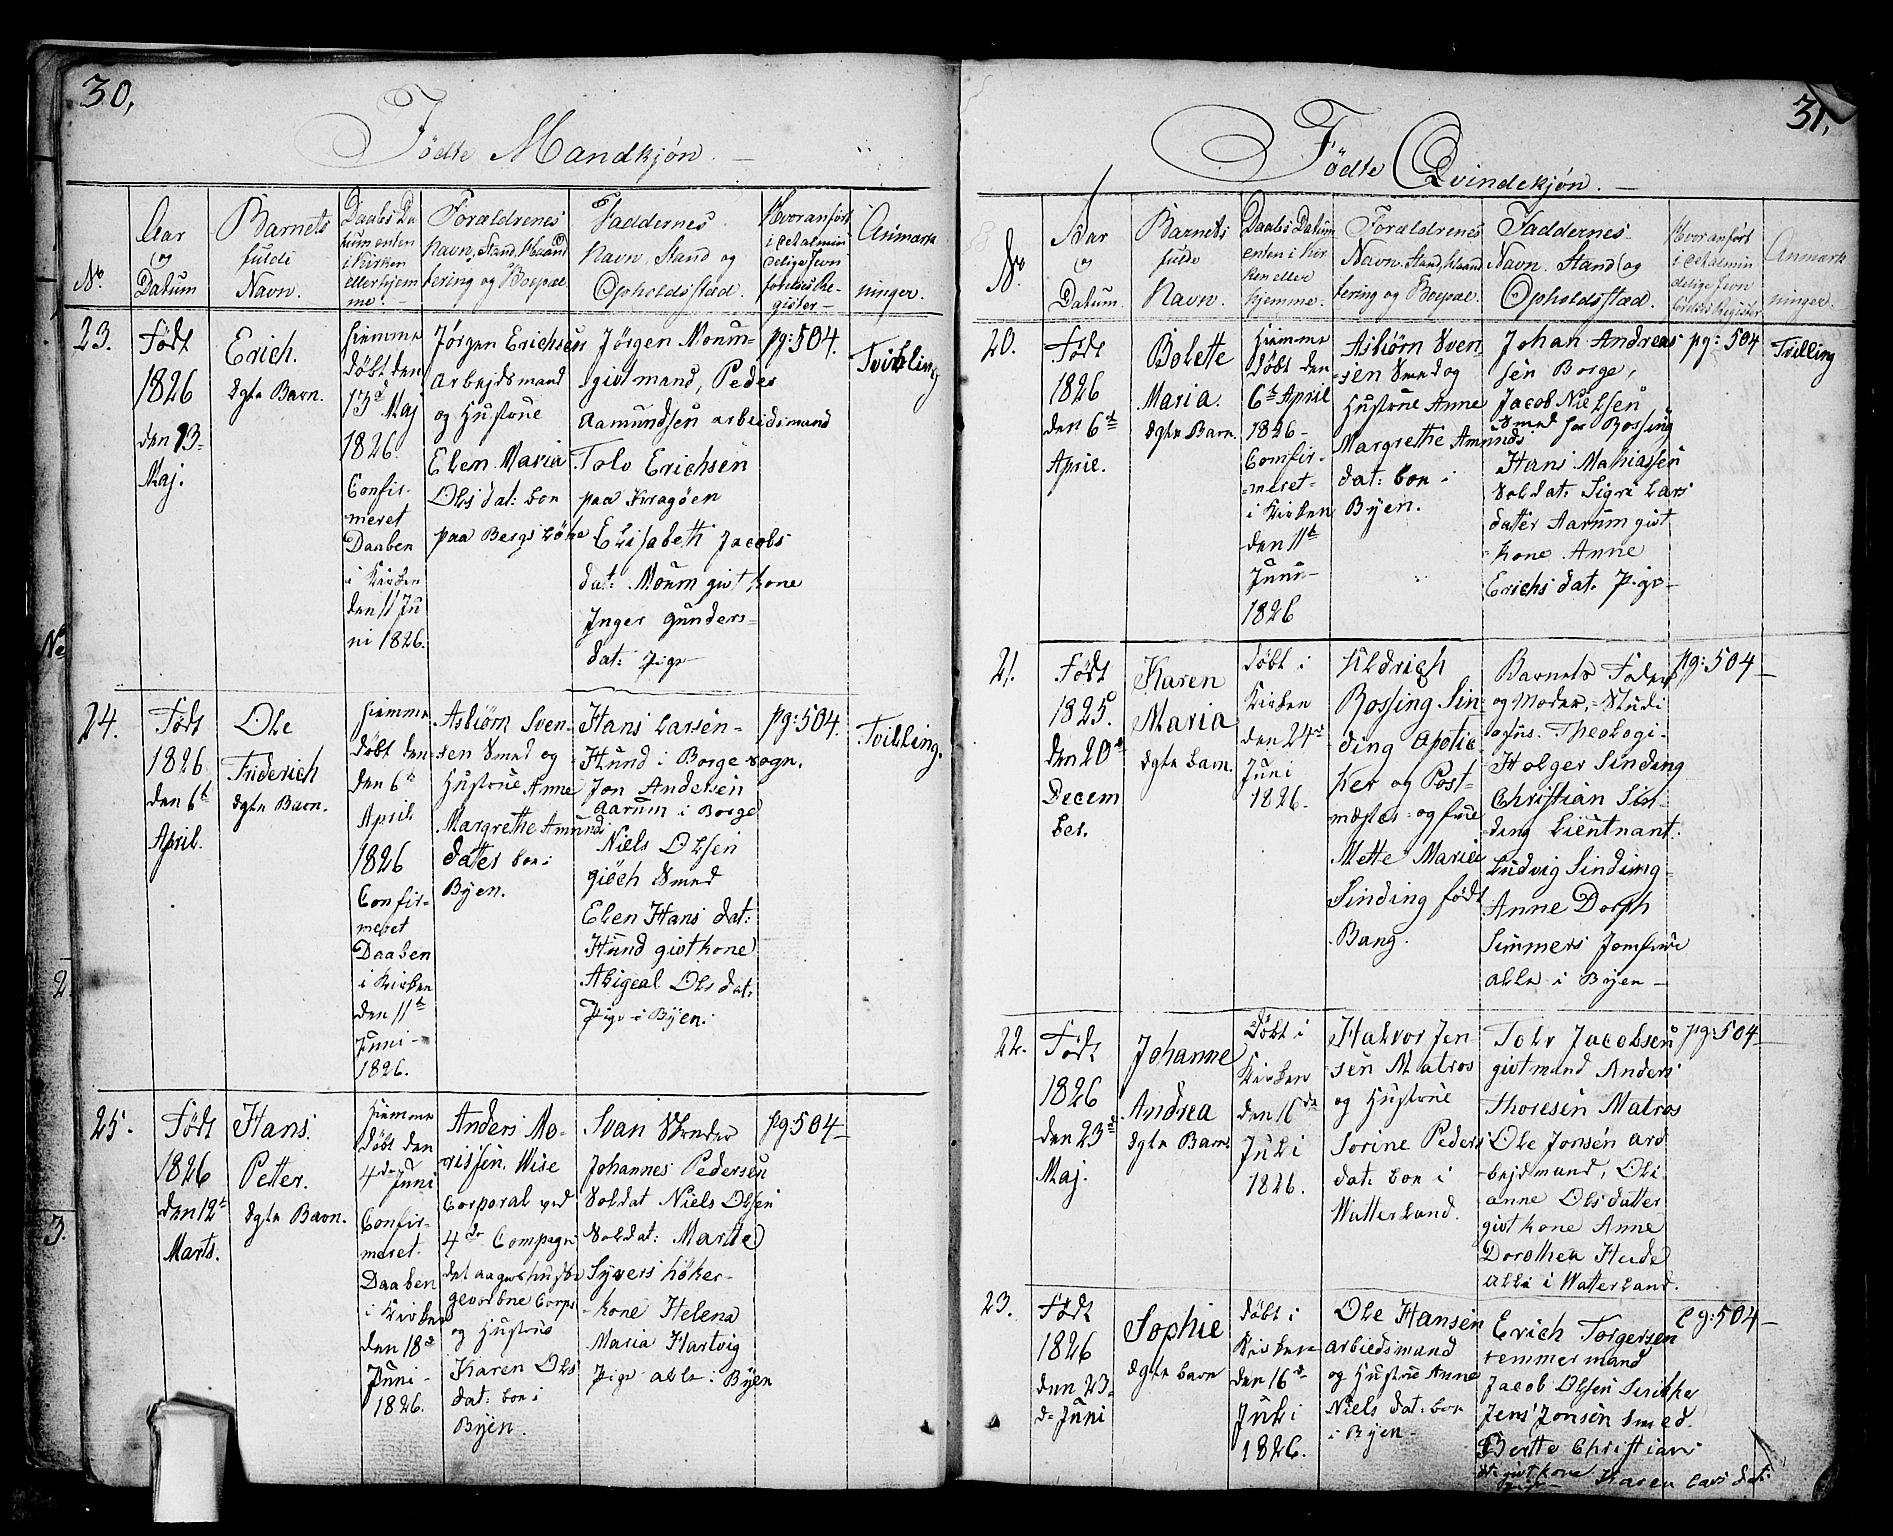 30,
Födte Mandkjön.
No.
Aar
og
Datum
Barnets
fulde
Navn.
Daabs Da
tum enten
i Kirken
eller hjem
me.
Foræoldrenes
Navn, Stand, Haand
tering og Boepæl
Faddernes
Navn, Stand og
Opholdsstæd.
Hvor anført
i det almin
delige Jevn
førelses Re-
gister
Anmærk
ninger.
23.
Födt
1826
den 13-
Maj.
Erich.
ægte Barn.
hiemme
döbt den
13d Maj
1826
Confir-
meret
Daaben
i Kirken
den 11 Ju
ni 1826.
Jörgen Erichsen
arbejdsmand
og Hustrue
Elen Maria
Olsdat: boe
paa Bergslökke
Jörgen Moum-
givtmand, Peder
Aamundsen arbeidsmand
Tolv Erichsen
paa Kragöen
Elisabeth Jacobs
dat: Moum givt kone
Inger Gunders-
dat: Pige
pg:504.
Tvilling
24.
Födt
1826
den 6t
April.
Ole
Friderich
ægte Barn.
hiemme
döbt den
den 6t
April
1826
Confir-
meret
Daaben
i Kirken
den 11t
Juni-
1826.
Asbiörn Sven-
sen Smed og
Hustrue Anne
Margrethe Amunds
datter boe i
Byen.
Hans Larsen-
Hund i Borge Sogn.
Jon Andersen
Aarum i Borge
Niels Olsen
giöch Smed
Elen Hans dat:
Hund givtkone
Abigeal Ols dat:
Pige i Byen.
pg:504.
Tvilling.
25.
Födt
1826
den 12t
Marts.
Hans
Petter.
ægte Barn.
hiemme
döbt den
4de Juni
Confir-
meret
Daaben
i Kirken
den 18d
Juni-
1826.
Anders Mo-
rissen, Wise
Corporal ved
4de Compagni
det aagershuske
gevorbne Corps
og Hustrue
Karen Ols
dat: boe i
Byen.
Svan
Johannes Pedersen
Soldat Niels Olsen
Soldat: Marthe
Syvers höker-
kone Helena
Maria Hartvig
Pige alle i Byen
pg504
31.
Födte Qvindekjön.
No.
Aar
og
Datum
Barnets
fulde
Navn.
Daabs Datum
enten i Kir
ken eller
hjemme.
Foræoldrenes
Navn, Stand, Haand
tering og Boepæl.
Faddernes
Navn, Stand og
Opholdsstæd.
Hvor anført
i det almin
delige Jevn
førelses Register
Anmærk
ninger.
20.
Födt
1826
den 6t
April.
Bolette
Maria.
ægte Barn.
hiemme
döbt den
6t April
1826-
Comfir-
meret-
i Kirken
den 11t
Juni-
1826
Asbiörn Sven
sen Smed og
Hustrue Anne
Margrethe Amunds
dat: boe i
Byen.
Johan Andreas
sen Borge,
Jacob Nielsen
Smed for Rossing
Hans Mathiassen
Soldat. Sigri Lars
datter Aarum givt
kone Anne
Erichs dat: Pige
pg:504
Tvilling
21.
Födt
1825
den 20d
Decem
ber.
Karen
Maria
ægte Barn.
döbt i
Kirken
den 24d
Juni
1826.
Uldrich
Rossing Sin
ding Apothe
ker og Post-
mæster og frue
Mette Marie
Sinding födt
Bang.
Barnets Fader
og Moder,- Studi
osus. Theologi-
Holger Sinding
Christian Sin-
ding Lieutnant.
Ludvig Sinding-
Anne Dorph
Simmers Jomfrue
alle i Byen
pg:504
22.
Födt
1826
den 23d
Maj.
Johanne
Andrea
ægte Barn.
döbt i
Kirken
den 16de
Juli
1826.
Halvor Jen
sen Matros
og Hustrue
Sorine Peders
dat: boe i
Watterland.
Tolv Jacobsen
givtmand Anders
Thoresen Matros
Ole Jonsen ard
bejdmand, Oli
anne Olsdatter
givt kone Anne
Dorothea Heide
alle i Watterland.
pg:504
23.
Födt
1826
den 23-
d Juni
Sophie
ægte barn
döbt i
Kirken
den 16d
Juli
1826.
Ole Hansen
arbiedsmand
og Hustrue Anne
Niels dat: boe
i Byen
Erich Torgersen
temmermand
Jacob Olsen
Jens Jonsen Smed.
Berthe Christians
dt givt kone
Pige
Karen Lars dat:
pg:504
No
2.
3.